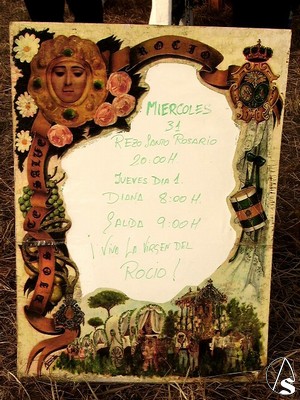 ROCIO
MIERCOLES
31
REZO SANTO ROSARIO
20:00 H
JUEVES DIA 1.
DIANA 8:00 H.
SALIDA 9:00 H
¡VIVA LA VIRGEN DEL
ROCIO!